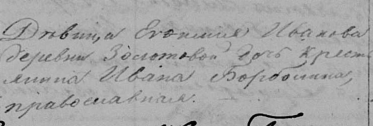 Девица Евфимия Иванова
деревни Золотовой дочь кресть
янина Ивана Боробкина,
православная.